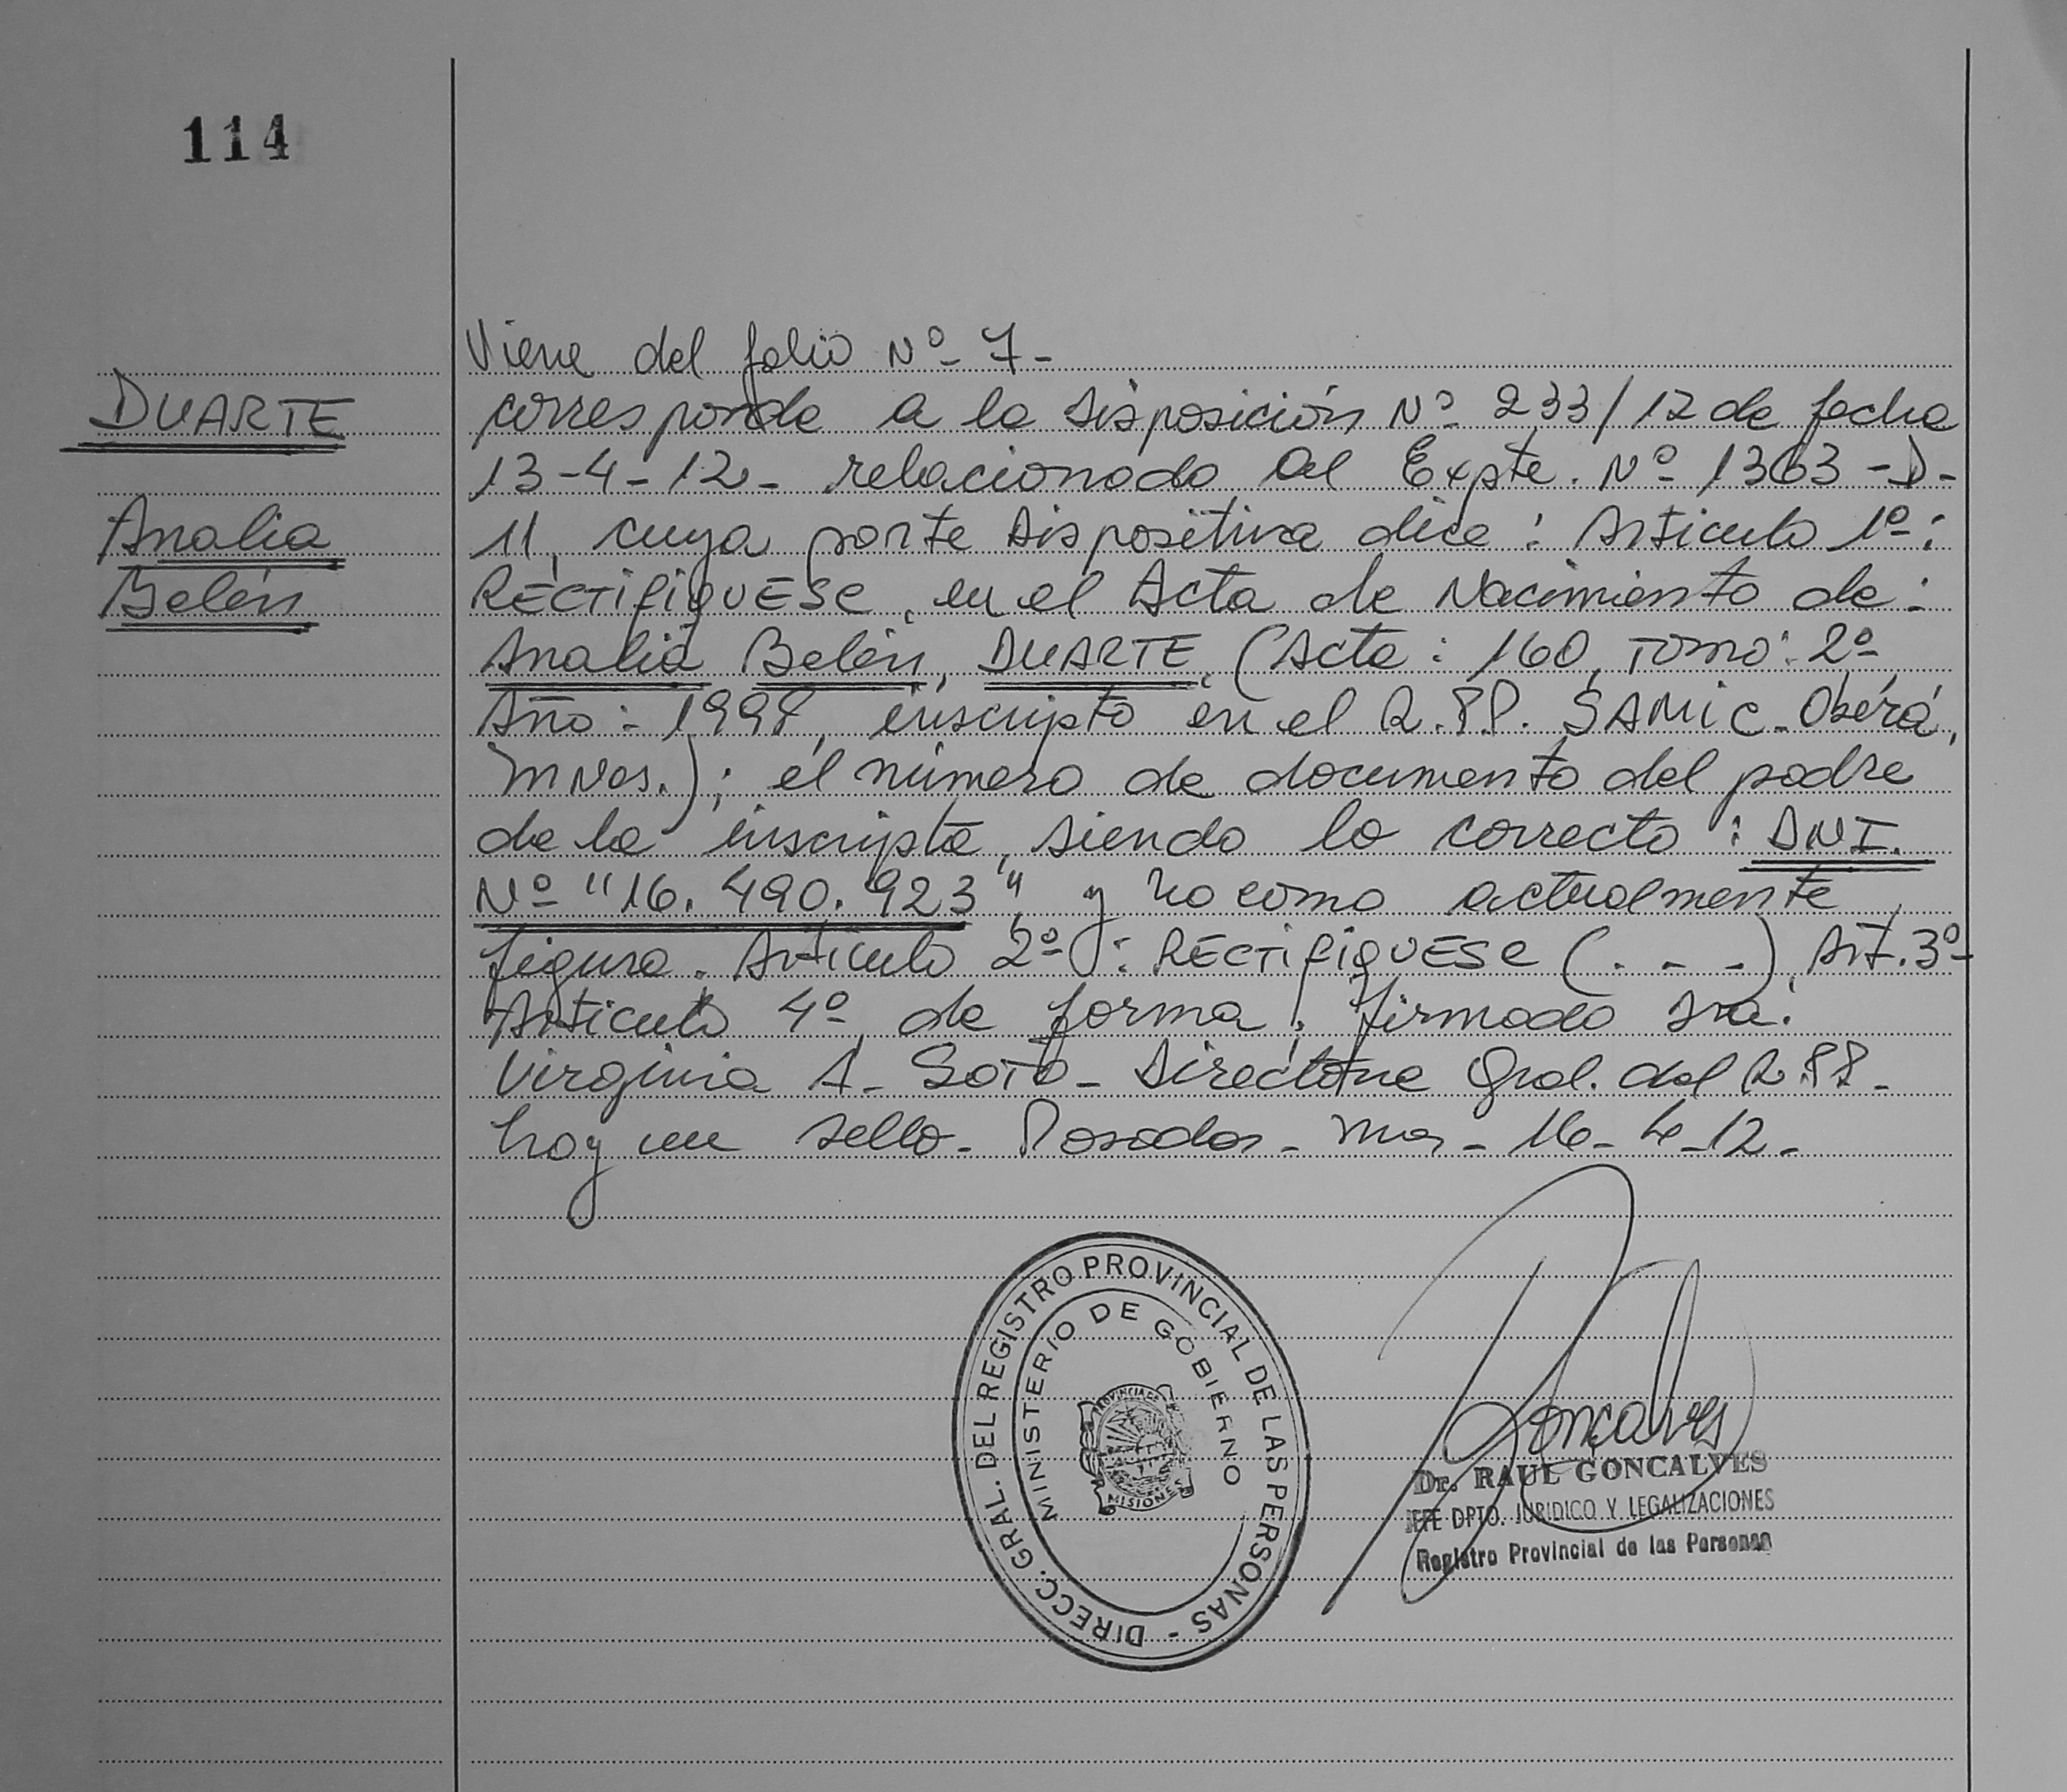 114
DUARTE
Analia
Belén
Viene del folio Nº 7-
corresponde a la Disposición Nº 233/12 de fecha
13-4-12- relacionado al Expte. Nº 1363-D-
11, cuya parte Dispositiva dice: Articulo 1º:
RECTIFIQUESE, en el Acta de Nacimiento de:
Analia Belén, DUARTE, (Acta: 160, Tomo: 2º
Año: 1998, inscripto en el R.PP. SAMIC-Oberá,
Mnes.); el número de documento del padre
de la inscripta, siendo lo correcto: DNI.
Nº "16.490.923", y no como actualmente
figura. Articulo 2º: RECTIFIQUESE (. - -), Art.3º-
Articulo 4º de forma. Firmado Sra.
Virginia A- SOTO- Directora Gral. del R.PP.-
hay un sello- Posadas- Mnes- 16-4-12-
DIRECC. GRAL. DEL REGISTRO PROVINCIAL DE LAS PERSONAS -
MINISTERIO DE GOBIERNO
PROVINCIA DE
MISIONES
Goncalves
Dr. RAUL GONCALVES
JEFE DPTO. JURIDICO Y LEGALIZACIONES
Registro Provincial de las Personas